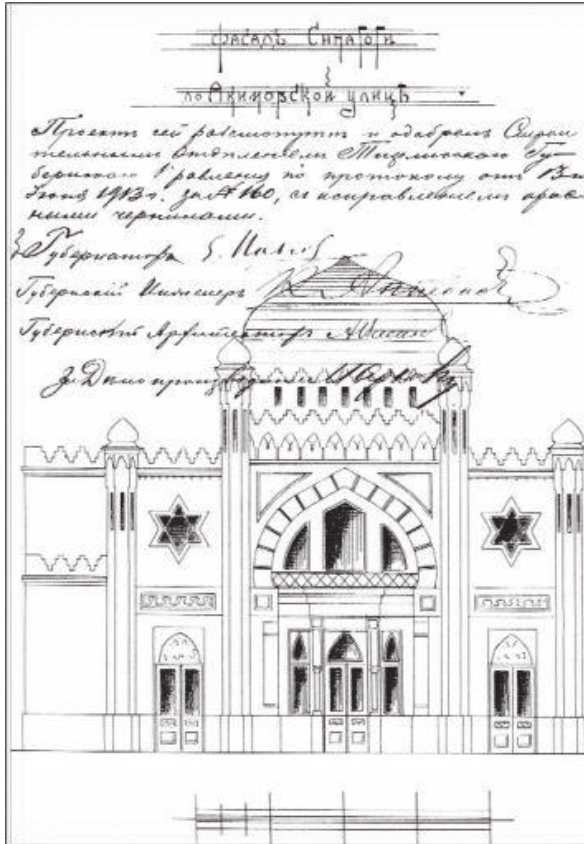 Фасадъ Синагоги
по Акимовской улицѣ
Проектъ сей разсмотрѣнъ и одобренъ Строи-
тельнымъ Отдѣленіемъ Тифлисскаго Гу-
бернскаго Правленія по протоколу отъ 13го
1913 г. за № 160, съ исправленіемъ крас-
ными чернилами.
Губернаторъ
Губернскій Инженеръ
Губернский Архитекторъ
За Дѣлопроизводителя